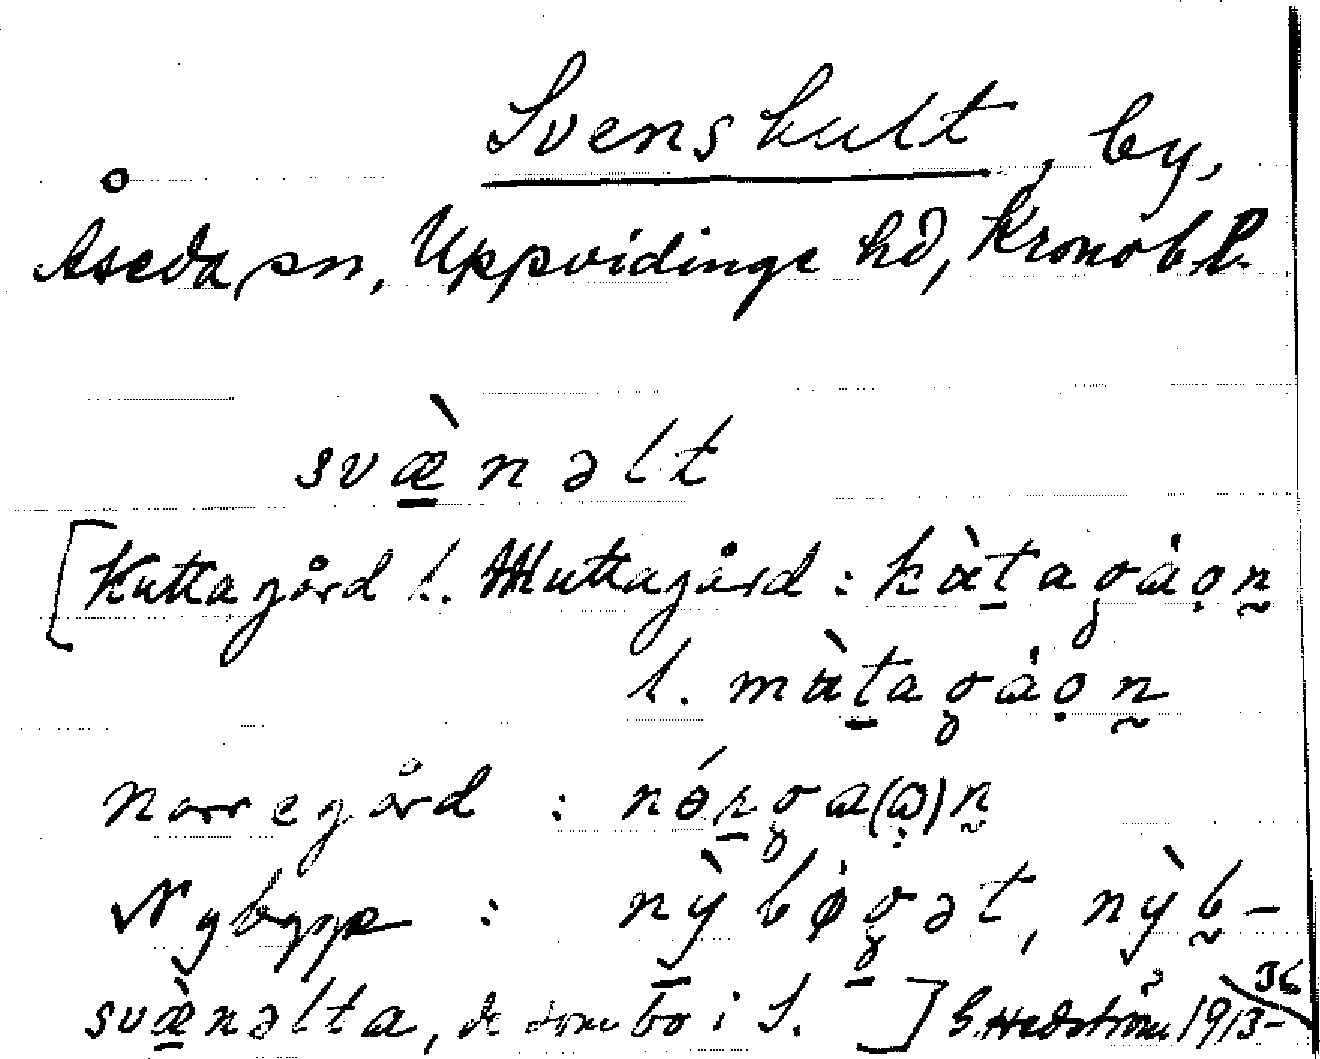 Svenshult, by,
Åseda sn, Uppvidinge hd, Kronob. l.
svæ̀nəlt
[Kuttagård l. Muttagård : kàtagåọn
l. màtagåọn
Norregård : nórga(ọ)n
Nybygge : nỳbøgət, nỳb-
svæ̀nəlta, de som bo i S.] G. Hedström 1913-